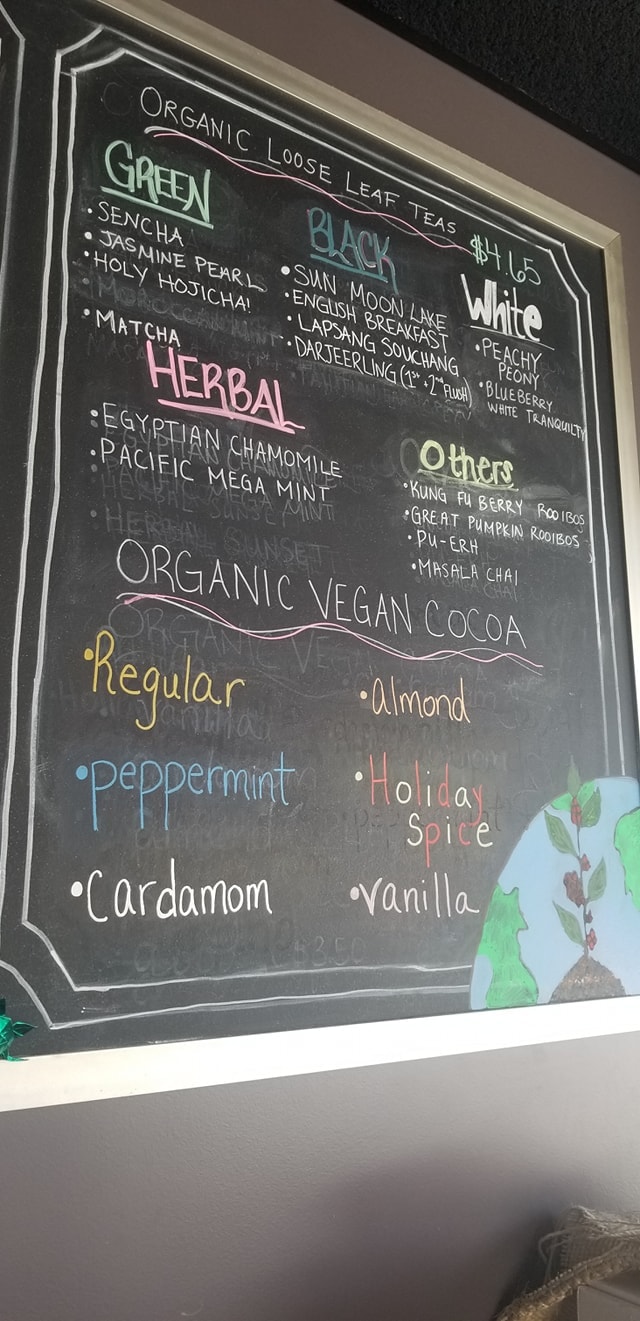 ORGANIC LOOSE LEAF TEAS
$4.65
GREEN
• SENCHA
• JASMINE PEARL
• HOLY HOJICHA!
• MATCHA
BLACK
• SUN MOON LAKE
• ENGLISH BREAKFAST
• LAPSANG SOUCHANG
• DARJEERLING (1ST + 2ND FLUSH)
White
• PEACHY
PEONY
• BLUEBERRY
WHITE TRANQUILTY
HERBAL
• EGYPTIAN CHAMOMILE
• PACIFIC MEGA MINT
Others
• KUNG FU BERRY ROOIBOS
• GREAT PUMPKIN ROOIBOS
• PU-ERH
• MASALA CHAI
ORGANIC VEGAN COCOA
• Regular
• almond
• peppermint
• Holiday
Spice
• Cardamom
• vanilla